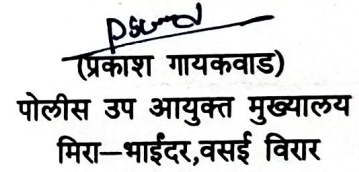 (प्रकाश गायकवाड)
पोलीस उप आयुक्त मुख्यालय
मिरा–भाईंदर,वसई विरार